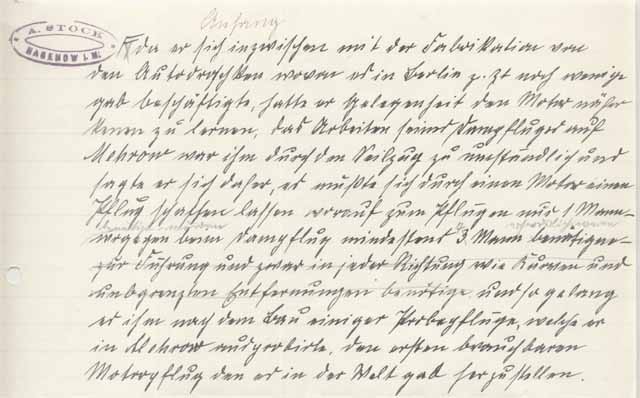 Anfang
A. STOCK
HAGENOW i. M.
da er sich inzwischen mit der Fabrikation von
den Autodroschken wovon es in Berlin z. Zt noch wenige
gab beschäftigte, hatte er Gelegenheit den Motor näher
kenen zu lernen, das Arbeiten seines Dampfluges auf
Mehrow war ihm durch den Seilzug zu umständlich und
sagte er sich daher, es müßte sich durch einen Motor einen
Pflug schaffen lassen worauf zum Pflügen nur 1 Mann
wogegen beim Dampflug mindestens 3. Mann benötigte
zur Führung und zwar in jeder Richtung wie Kurven und
unbegrenzten Entfernungen benötige und so gelang
es ihm nach dem Bau einiger Probepflüge, welche er
in Mehrow ausprobirte, den ersten brauchbaren
Motorpflug den es in der Welt gab herzustellen.